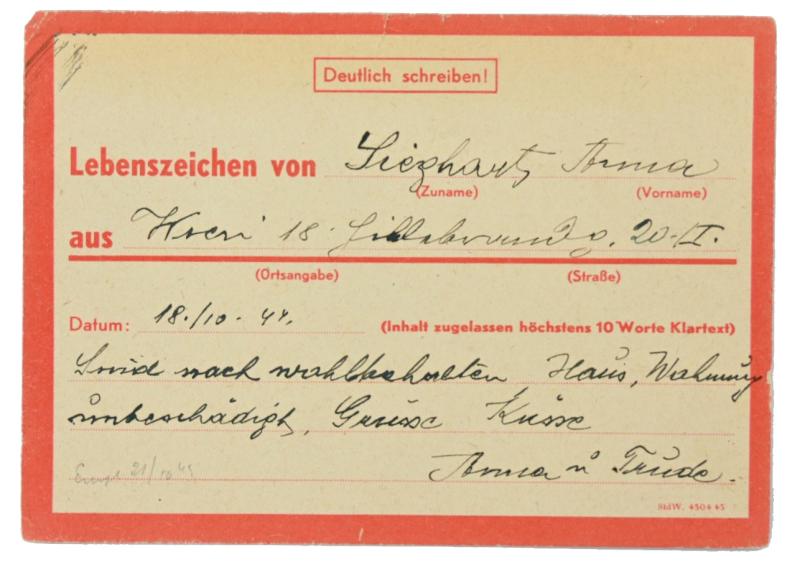 Deutlich schreiben!
Lebenszeichen von Sieghart Anna
(Zuname) (Vorname)
aus Wien 18. Hillebrandg. 20-II.
(Ortsangabe) (Straße)
Datum: 18./10. 44. (Inhalt zugelassen höchstens 10 Worte Klartext)
Sind noch wohlbehalten Haus, Wohnung
unbeschädigt, Grüsse Küsse
21/10 44
Anna u Trude.
StdW. 4504 45